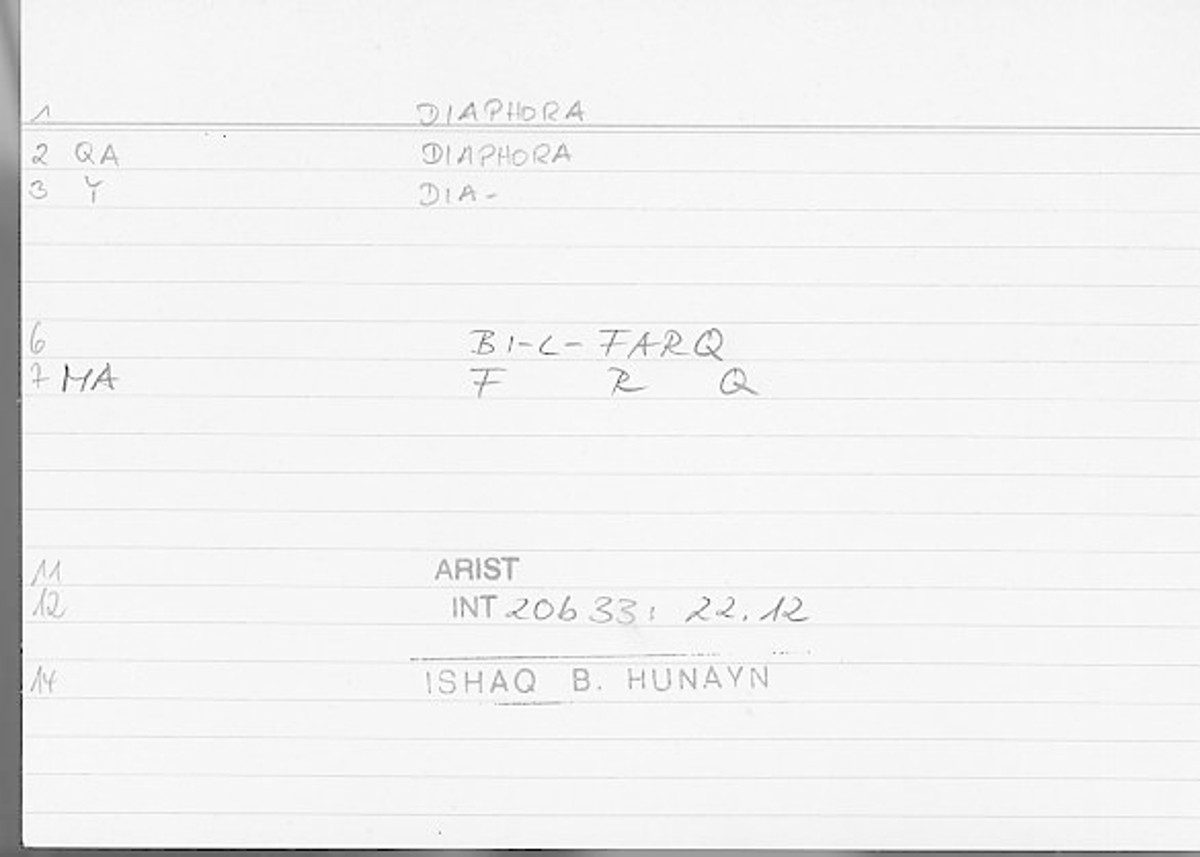 1 DIAPHORA
2 QA DIAPHORA
3 Y DIA-
6 BI-L-FARQ
7 MA F R Q
11 ARIST
12 INT 20b 33; 22.12
14 ISHAQ B. HUNAYN